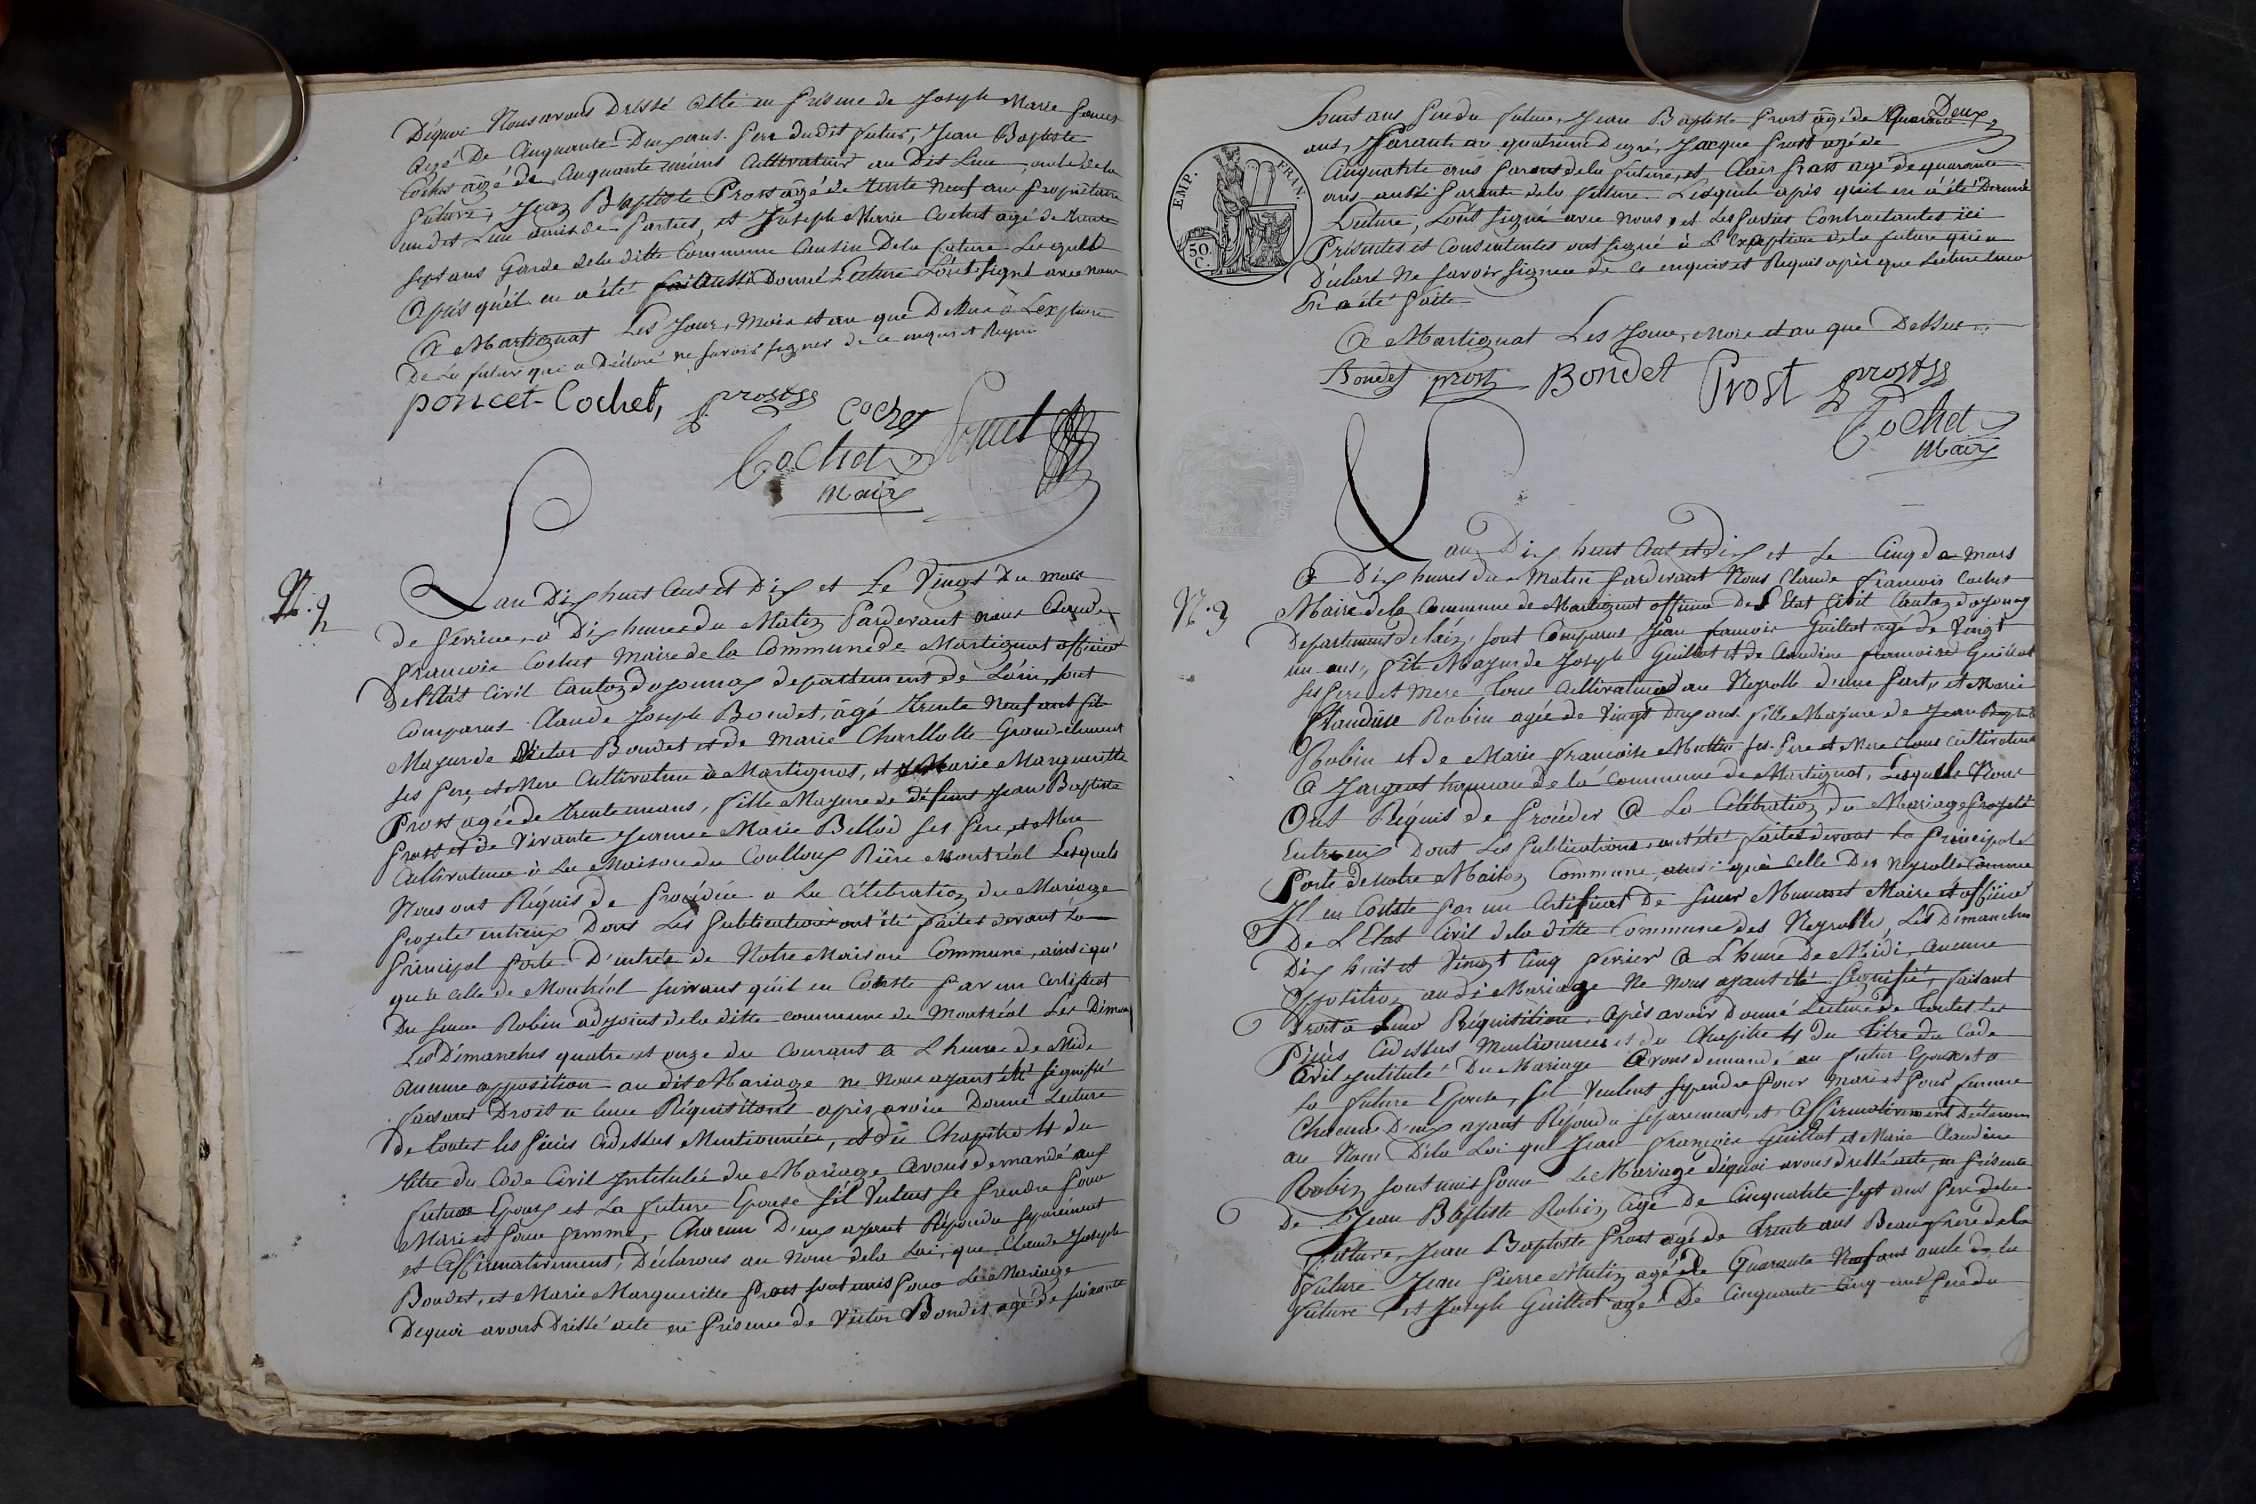 Déquoi Nous avons Dressé Acte en présence de Joseph Marie poncet
agé De Cinquante Deux ans. pere dudit futur, Jean Baptiste
Cochet âgé de Cinquante un ans Cultivateur au Dit Lieu, oncle de la
future, Jean Baptiste Prost âgé de trente neuf ans propriétaire
audit Lieu amis de parties, et Joseph Marie Cochet agé de trente
sept ans Garde dela ditte Commune Cousin Dela future Lesquels
apris qu'il en a été fait aussi Donné Lecture L'ont signé avec nous
A Martignat Les Jour, Mois et an que Dessus à L'exption
De La futur qui a Déclaré ne savoir signer de ce enquis et Requis
poncet - Cochet, prost
Cochet poncet
Cochet
Maire
N. 2
L'an Dix huit Cent et Dix et Le Vingt Du mois
de fevrier, à Dix heures du Matin Pardevant nous Claude
francois Cochet Maire de la Commune de Martignat officier
De l'état Civil Canton doyonnax departement de Lain, sont
Comparus Claude Joseph Bondet, âgé trente Neuf ans fils
Majeur de Victor Bondet et de Marie Charllotte Grand-clement
ses pere et Mere Cultivateur à Martignat, et Marie Marguerite
Prost agée de trente un ans, fille Majeure de défunt Jean Baptiste
Prost et de Vivante Jeanne Marie Belloid ses pere et Mere
Cultivateur à La Maison du Coulloux Rière Montréal Lesquels
Nous ont Réquis de Procéder a La Célébration du Mariage
projeté entreux Dont Les publications ont été faites devant La
principal porte D'entrée de Notre Maison Commune, ainsi qu'
qu'à Celle de Montréal suivant qu'il en Conste par un Certificat
Du sieur Robin adjoint dela ditte commune de Montréal Les Diman
Les Dimanches quatre et onze du Courant a L'heure de Midi
aucune opposition au dit Mariage ne Nous ayant été signifié
faisant Droit a leur Réquisitions après avoir Donné Lecture
de toutes les pièces Cidessus Mentionnées, et du Chapitre 4 du
titre du Code Civil Intitulée du Mariage Avons demandé aux
futur Epoux et La future Epouse s'il Veulent se prendre pour
Mari et pour femme, Chacun D'eux ayant Répondu séparément
et Affirmativement, Déclarons au Nom dela Loi, que Claude Joseph
Bondet, et Marie Marguerite Prost sont unis pour Le Mariage
Dequoi avons Dressé acte en présence de Victor Bondet agé de soixante
EMP. FRAN.
50.
C.
huit ans pere du futur, Jean Baptiste Prost âgé de Quarante Deux
ans, Parent au quatrieme Degré, Jacque Prost agé de
Cinquante ans parent dela future, et Clair Prost agé de quarante
ans aussi parent dela future. Lesquels apris qu'il en a été Donnée
Lecture, L'ont signé avec Nous, et Les parties Contractantes ici
Présentes et Consentantes ont signé à L'exception dela future qui a
Déclaré Ne savoir signer de ce enquis et Requis après que Lecture leur
En a été faite
A Martignat Les Jour, Mois et an que Dessus
Bondet prost Bondet Prost prost
Cochet
Maire
N. 3
L'an Dix huit Cent et Dix et Le Cinq de mars
A Dix heures du Matin pardevant Nous Claude francois Cochet
Maire de la Commune de Martignat officier De L'Etat Civil Canton doyonnax
Departement de l'ain, sont Comparus Jean francois Guillot agé de Vingt
un ans, fils Majeur de Joseph Guillot et de Claudine francoise Guillot
ses pere et Mere tous Cultivateurs au Neyrolle d'une part, et Marie
Claudine Robin agée de Vingt Deux ans fille Majeure de Jean Baptiste
Robin et de Marie francoise Muttin ses pere et Mere tous Cultivateur
A Jargeat hameau de la Commune de Martignat, Lesquels Nous
Ont Réquis de procéder A La Célébration du Mariage projeté
Entr'eux Dont Les publications ont été faites devant La principale
porte de Notre Maison Commune ainsi qu'à Celle Des Neyrolle Comme
Il en Conste par un Certificat De sieur Maire et officier
De L'Etat Civil dela ditte Commune des Neyrolle, Les Dimanches
Dix huit et Vingt Cinq fevrier A L'heure De Midi, aucune
Opposition au di Mariage Ne Nous ayant été signifié, faisant
Droit a leur Réquisition, Après avoir Donné Lecture de toutes Les
Pièces Cidessus Mentionnées et du Chapitre 4 du titre du Code
Civil intitulé Du Mariage Avons demandé au futur Epoux et a
La future Epouse, s'il Veulent se prendre pour Mari et pour femme
Chacun D'eux ayant Répondu séparement, et Affirmativement Déclarons
au Nom Dela Loi que Jean francois Guillot et Marie Claudine
Robin sont unis pour Le Mariage déquoi avons dressé acte, en présence
De Jean Baptiste Robin, Agé De Cinquante sept ans pere dela
future, Jean Baptiste Prost agé de trente ans Beau frere dela
future Jean Pierre Mutin agé de Quarante Neuf ans oncle de la
future, et Joseph Guillot agé De Cinquante Cinq ans pere du